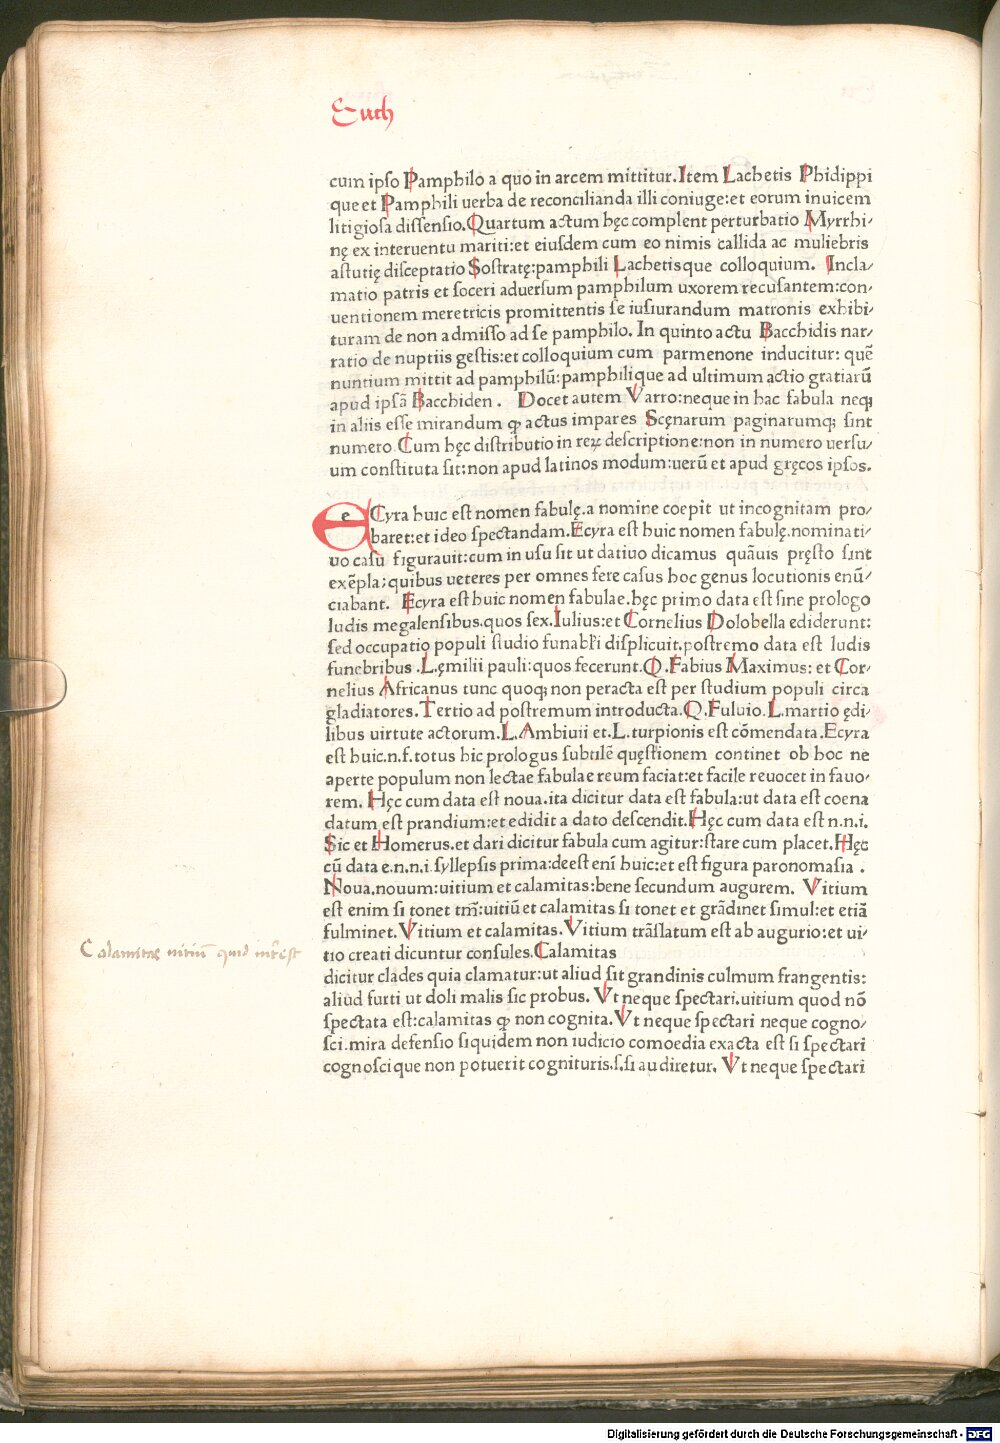 Euth
cum ipſo Pamphilo a quo in arcem mittitur. Item Lachetis Phidippi
que et Pamphili uerba de reconcilianda illi coniuge: et eorum inuicem
litigioſa diſſenſio. Quartum actum hęc complent perturbatio Myrrhi-
nę ex interuentu mariti: et eiuſdem cum eo nimis callida ac muliebris
aſtutię diſceptatio Soſtratę: pamphili Lachetisque colloquium. Incla-
matio patris et ſoceri aduerſum pamphilum uxorem recuſantem: con-
uentionem meretricis promittentis ſe iuſiurandum matronis exhibi-
turam de non admiſſo ad ſe pamphilo. In quinto actu Bacchidis nar-
ratio de nuptiis geſtis: et colloquium cum parmenone inducitur: quē
nuntium mittit ad pamphilū: pamphilique ad ultimum actio gratiarū
apud ipſā Bacchiden. Docet autem Varro: neque in hac fabula neqꝫ
in aliis eſſe mirandum ꝙ actus impares Scęnarum paginarumqꝫ ſint
numero. Cum hęc diſtributio in reꝝ deſcriptione: non in numero uerſu-
um conſtituta ſit: non apud latinos modum: uerū et apud gręcos ipſos.
e
Cyra huic eſt nomen fabulę. a nomine coepit ut incognitam pro-
baret: et ideo ſpectandam. Ecyra eſt huic nomen fabulę. nominati-
uo caſu figurauit: cum in uſu ſit ut datiuo dicamus quāuis pręſto ſint
exēpla: quibus ueteres per omnes fere caſus hoc genus locutionis enū-
ciabant. Ecyra eſt huic nomen fabulae. hęc primo data eſt ſine prologo
ludis megalenſibus. quos ſex. Iulius: et Cornelius Dolobella ediderunt:
ſed occupatio populi ſtudio funabƚi diſplicuit. poſtremo data eſt ludis
funebribus . L. ęmilii pauli: quos fecerunt. Q. Fabius Maximus: et Cor-
nelius Africanus tunc quoqꝫ non peracta eſt per ſtudium populi circa
gladiatores. Tertio ad poſtremum introducta. Q. Fuluio. L. martio ędi-
libus uirtute actorum. L. Ambiuii et. L. turpionis eſt cōmendata. Ecyra
eſt huic. n. f. totus hic prologus ſubtilē quęſtionem continet ob hoc ne
aperte populum non lectae fabulae reum faciat: et facile reuocet in fauo-
rem. Hęc cum data eſt noua. ita dicitur data eſt fabula: ut data eſt coena
datum eſt prandium: et edidit a dato deſcendit. Hęc cum data eſt n. n. i.
Sic et Homerus. et dari dicitur fabula cum agitur: ſtare cum placet. Hęc
cū data e. n. n. i. ſyllepſis prima: deeſt eni̅ huic: et eſt figura paronomaſia .
Noua. nouum: uitium et calamitas: bene ſecundum augurem. Vitium
eſt enim ſi tonet tm̄: uitiū et calamitas ſi tonet et grādinet ſimul: et etiā
fulminet. Vitium et calamitas. Vitium trāſlatum eſt ab augurio: et ui-
tio creati dicuntur conſules. Calamitas
dicitur clades quia clamatur: ut aliud ſit grandinis culmum frangentis:
aliud furti ut doli malis ſic probus. Vt neque ſpectari. uitium quod nō
ſpectata eſt: calamitas ꝙ non cognita. Vt neque ſpectari neque cogno-
ſci. mira defenſio ſiquidem non iudicio comoedia exacta eſt ſi ſpectari
cognoſcique non potuerit cognituris. ſ. ſi audiretur. Vt neque ſpectari
Calamitas uitiu̅ quid int̄eſt
Digitalisierung gefördert durch die Deutsche Forschungsgemeinschaft - DFG